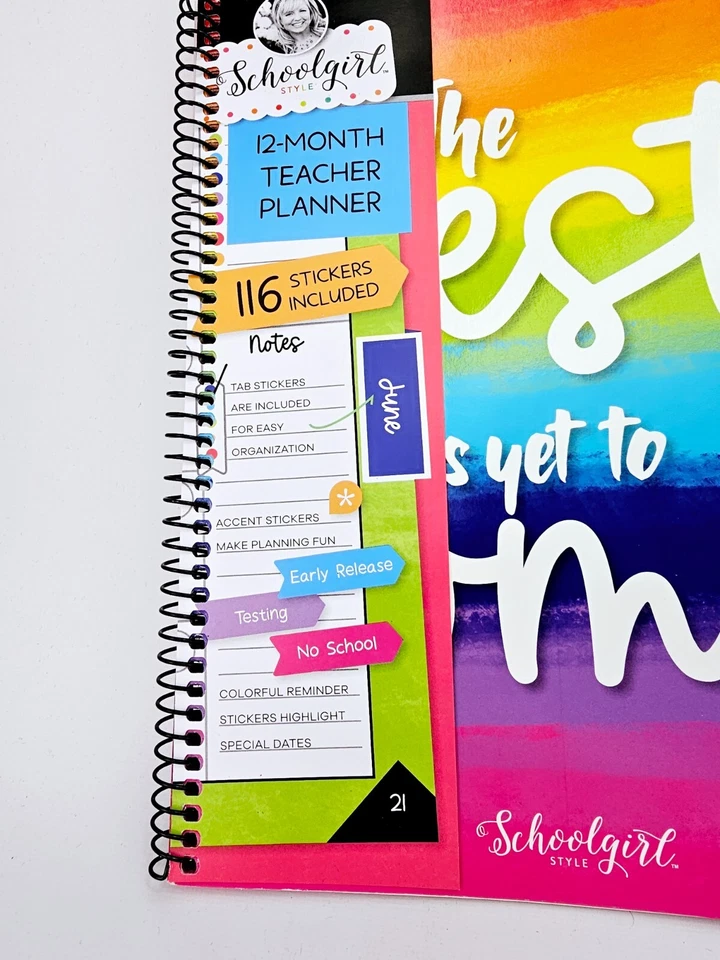 Schoolgirl
STYLE™
12-MONTH
TEACHER
PLANNER
116 STICKERS
INCLUDED
Notes
TAB STICKERS
ARE INCLUDED
FOR EASY
ORGANIZATION
June
*
ACCENT STICKERS
MAKE PLANNING FUN
Early Release
Testing
No School
COLORFUL REMINDER
STICKERS HIGHLIGHT
SPECIAL DATES
21
The
est
s yet to
m
Schoolgirl
STYLE™